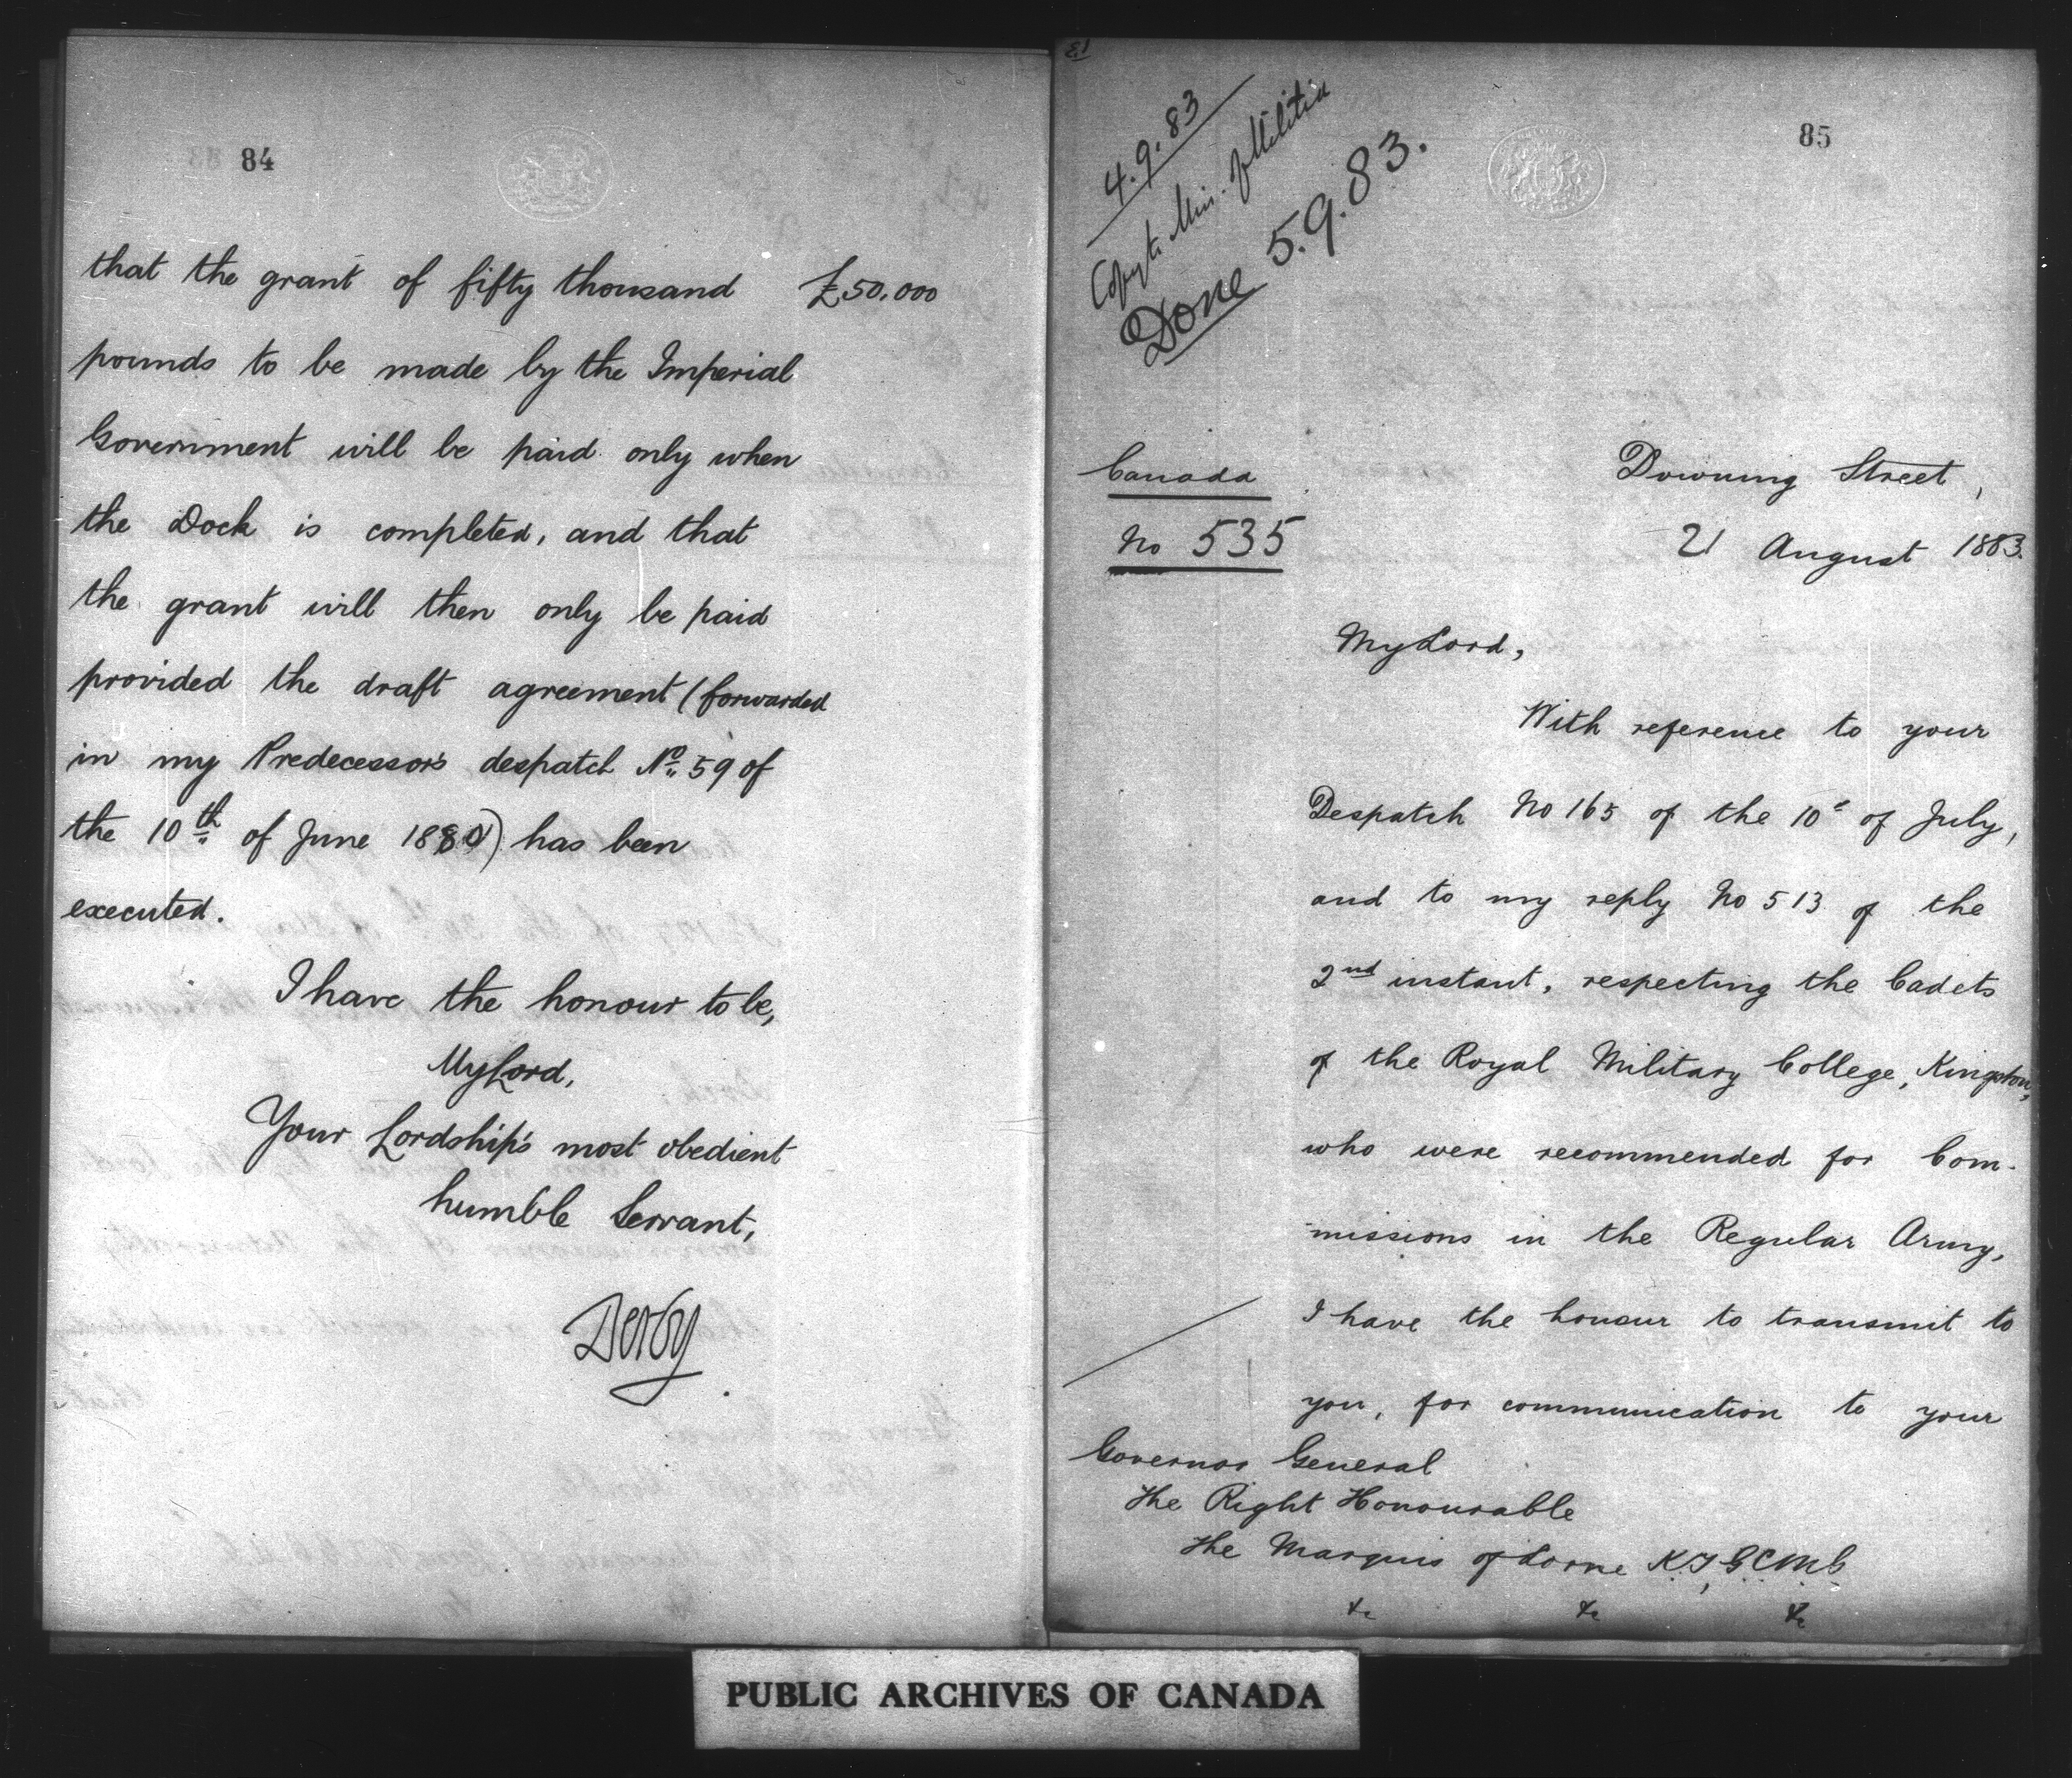 84
that the grant of fifty thousand £50,000
pounds to be made by the Imperial
Government will be paid only when
the Dock is completed, and that
the grant will then only be paid
provided the draft agreement (forwarded
in my Predecessor's despatch No. 59 of
the 10th of June 1880) has been
executed.
I have the honour to be,
My Lord,
Your Lordship's most obedient
humble Servant,
Derby
85
4.9.83
Copy to Min. of Militia
Done 5.9.83.
Canada
No 535
Downing Street,
21 August 1883.
My Lord,
With reference to your
Despatch No 165 of the 10th of July,
and to my reply No 513 of the
2nd instant, respecting the Cadets
of the Royal Military College, Kingston,
who were recommended for Com-
missions in the Regular Army,
I have the honour to transmit to
you, for communication to your
Governor General
The Right Honourable
The Marquis of Lorne K.T., G.C.M.G
&c &c &c
PUBLIC ARCHIVES OF CANADA